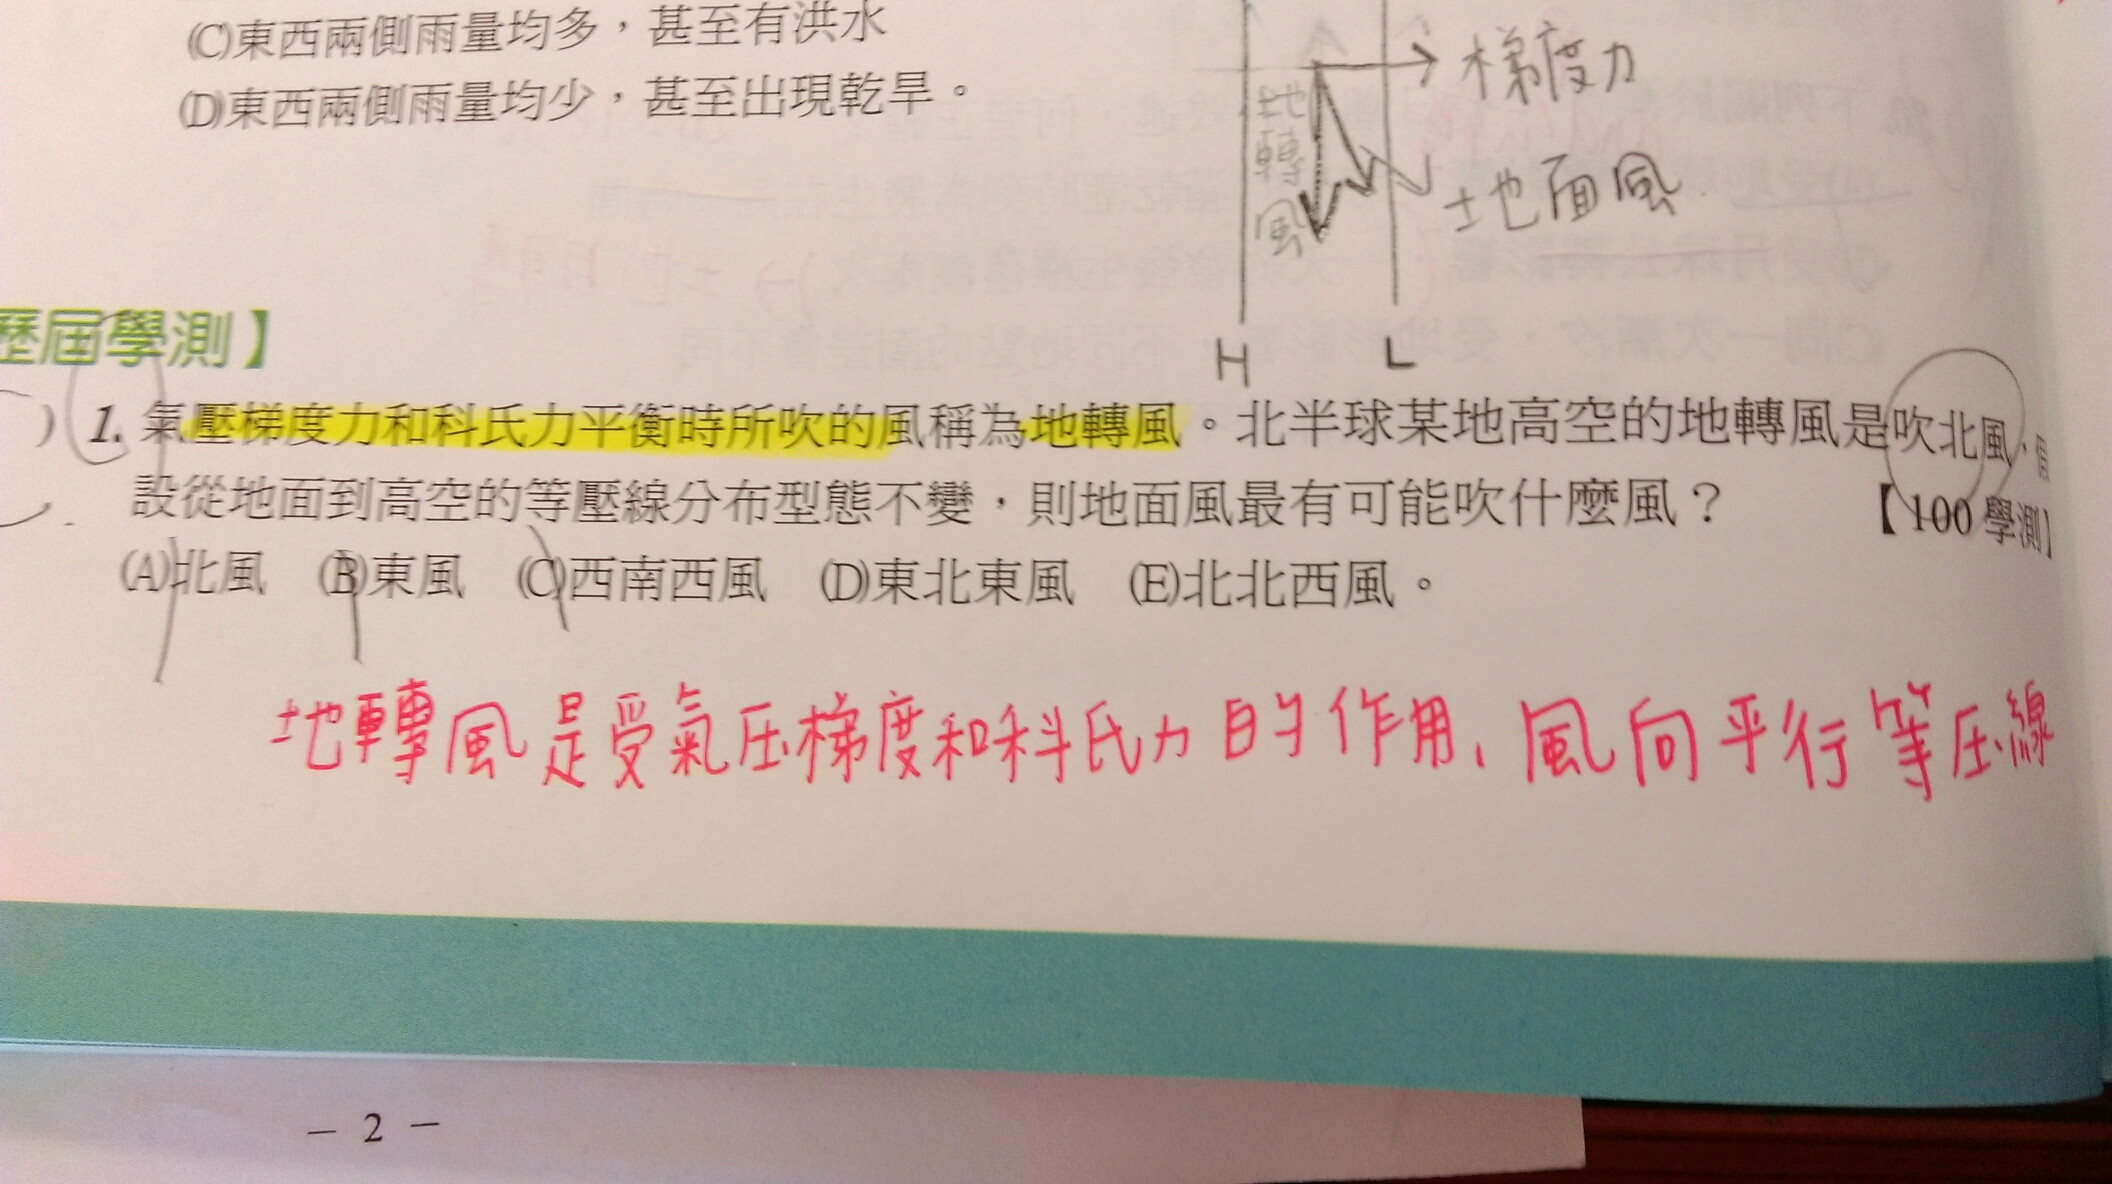 (C)東西兩側雨量均多，甚至有洪水
(D)東西兩側雨量均少，甚至出現乾旱。
梯度力
地轉風
地面風
H L
歷屆學測】
) 1. 氣壓梯度力和科氏力平衡時所吹的風稱為地轉風。北半球某地高空的地轉風是吹北風，假
設從地面到高空的等壓線分布型態不變，則地面風最有可能吹什麼風？ 【100學測】
(A)北風 (B)東風 (C)西南西風 (D)東北東風 (E)北北西風。
地轉風是受氣压梯度和科氏力的作用、風向平行等压線
— 2 —